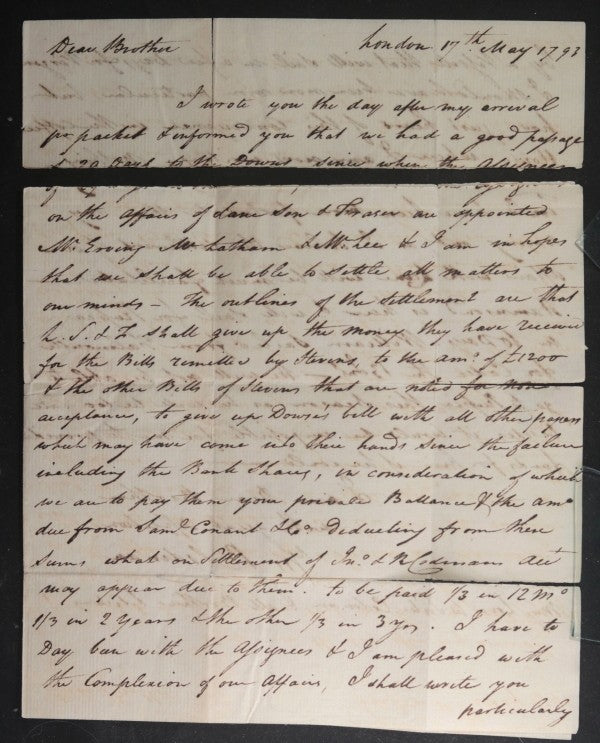 Dear Brother London 17th May 1793
I wrote you the day after my arrival
pr packet & informed you that we had a good passage
of 20 Days to the Downs since when the Assignees
on the Affairs of Lane Son & Fraser are appointed
Mr. Erving Mr. Latham & Mr. Lees & I am in hopes
that we shall be able to settle all matters to
our minds — The outlines of the Settlement are that
L. S. & F shall give up the money they have receivd
for the Bills remitted by Stevens, to the amo. of £1200
& the other Bills of Stevens that are noted for Non
acceptance, to give up Dowse's bill with all other papers
which may have come into their hands since the failure
including the Bank Shares, in consideration of which
we are to pay them your private Ballance & the amo.
due from Saml. Conant & Co. deducting from these
Sums what on Settlement of Jno. & R Codmans acct
may appear due to them. to be paid 1/3 in 12 Mo.
1/3 in 2 Years & the other 1/3 in 3 yrs. I have to
Day been with the Assignees & I am pleased with
the Complexion of our Affairs, I shall write you
particularly